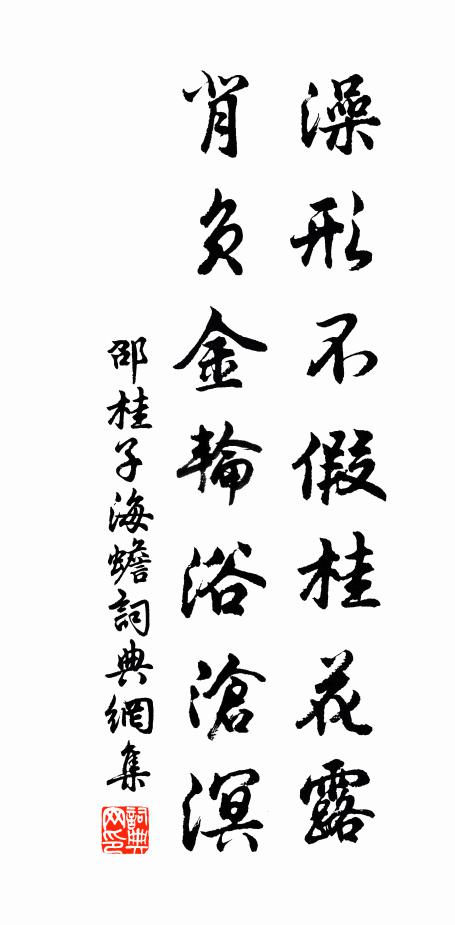 澡形不假桂花露
肖負金輪浴滄溟
邵桂子海蟾詞典網集
詞典網印